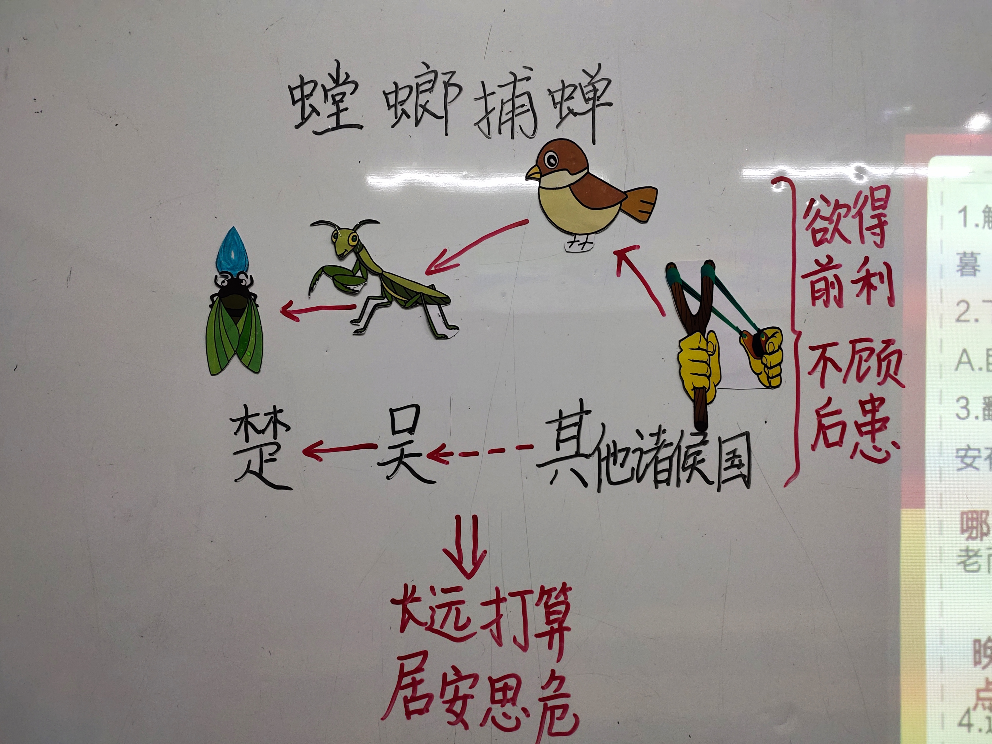 螳螂捕蝉
欲得
前利
不顾
后患
楚 吴 其他诸候国
长远打算
居安思危
1.解
暮
2.
A.
3.翻
安
哪
老而
晚
点
4.